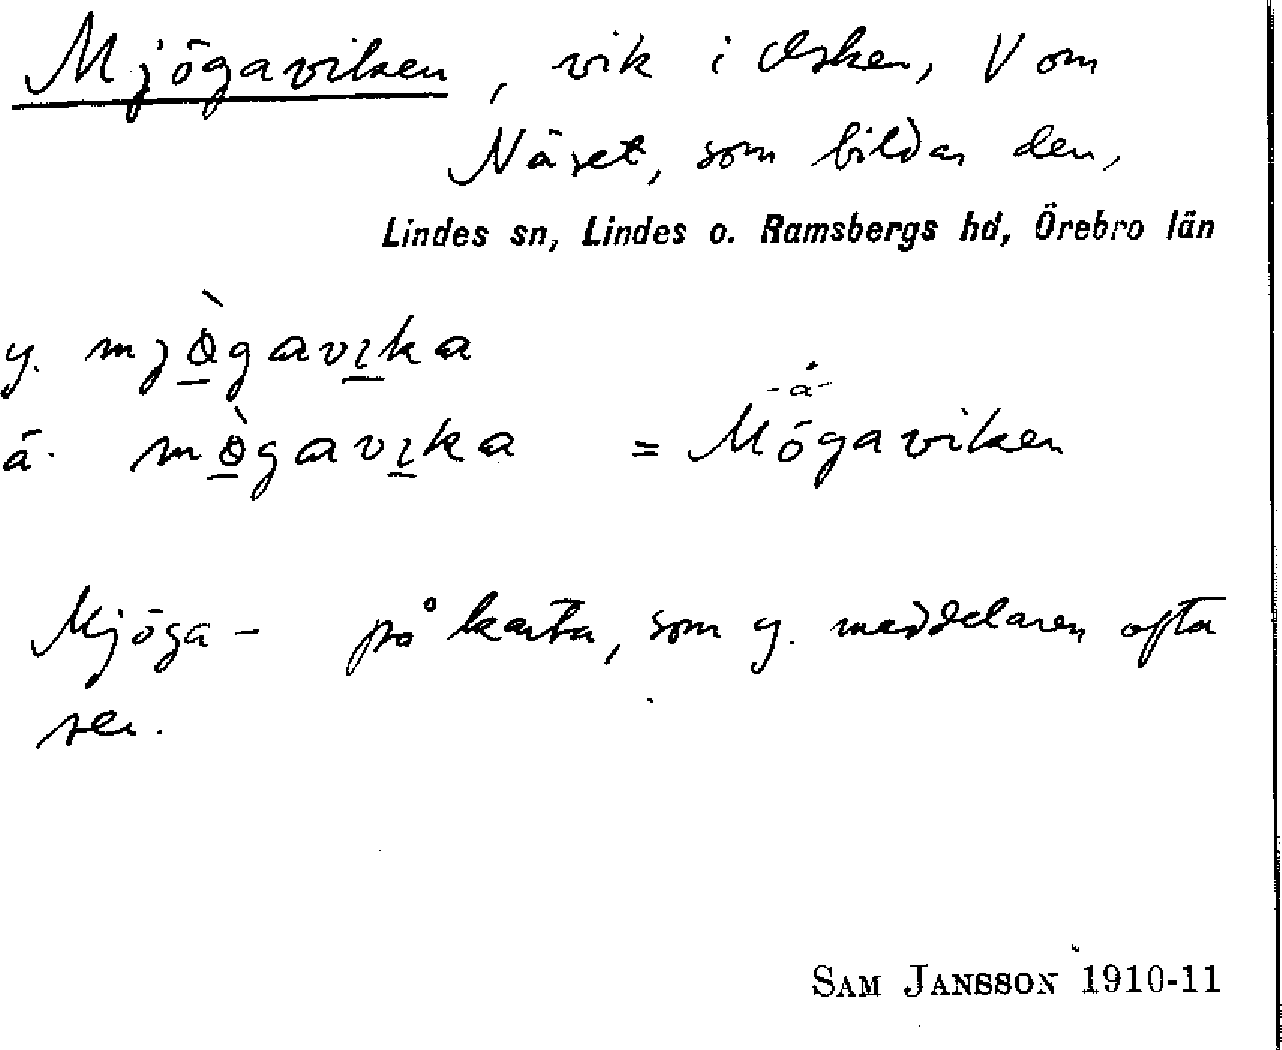 Mjögaviken, vik i Usken, V om
Näset, som bildar den,
Lindes sn, Lindes o. Ramsbergs hd, Örebro län
y. mjògavıka
ä. mògavıka = Mögaviken
-å-
Mjöga- på karta, som y. meddelaren ofta
ser.
SAM JANSSON 1910-11